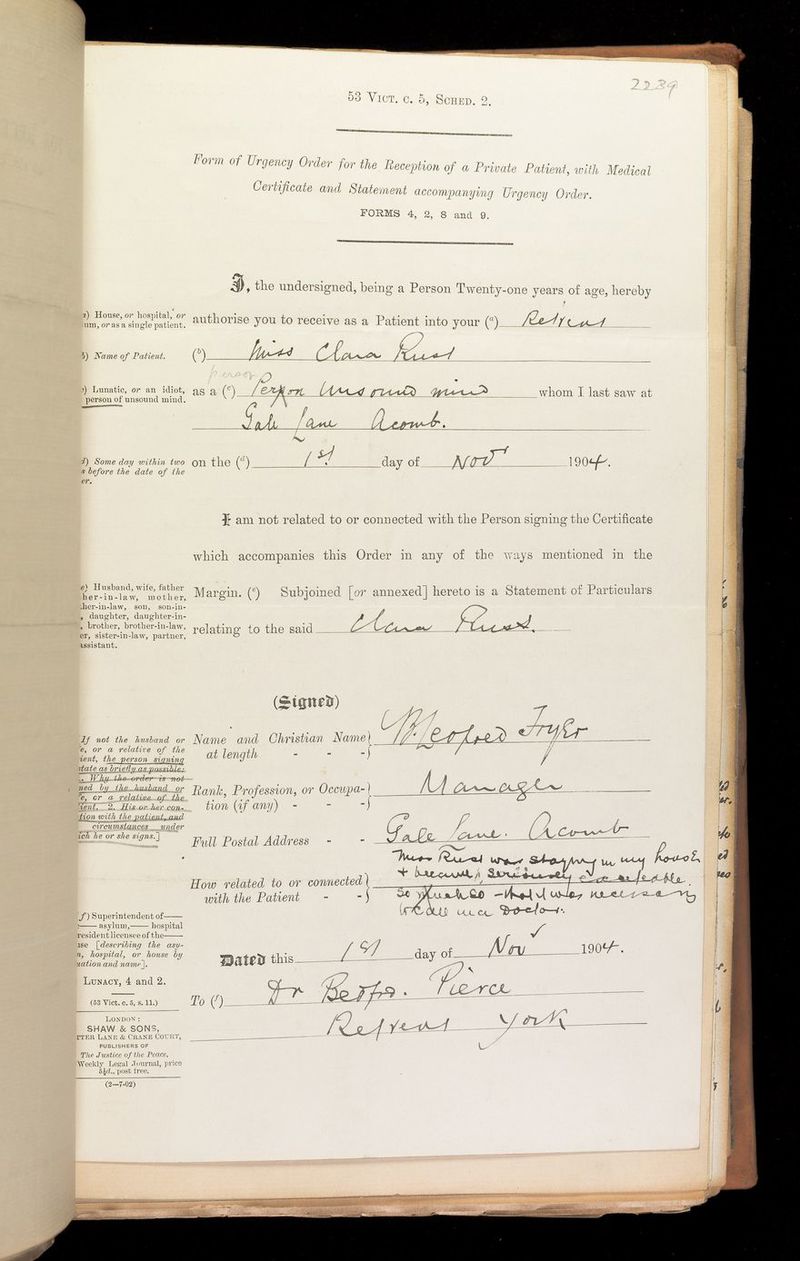 2239
53 VICT. C. 5, SCHED. 2.
Form of Urgency Order for the Reception of a Private Patient, with Medical
Certificate and Statement accompanying Urgency Order.
FORMS 4, 2, 8 and 9.
I, the undersigned, being a Person Twenty-one years of age, hereby
a) House, or hospital, or
um, or as a single patient.
authorise you to receive as a Patient into your (a) Retreat
b) Name of Patient.
(b) Miss Clara Rust
person
c) Lunatic, or an idiot,
person of unsound mind.
as a (c) Person Unsound mind whom I last saw at
Gale Lane Acomb.
d) Some day within two
s before the date of the
er.
on the (d) 1st day of Novr 1904.
I am not related to or connected with the Person signing the Certificate
which accompanies this Order in any of the ways mentioned in the
e) Husband, wife, father
her-in-law, mother,
her-in-law, son, son-in-
, daughter, daughter-in-
, brother, brother-in-law,
er, sister-in-law, partner,
assistant.
Margin. (e) Subjoined [or annexed] hereto is a Statement of Particulars
relating to the said Clara Rust.
(Signed)
If not the husband or
e, or a relative of the
ient, the person signing
state as briefly as possible:
1. Why the order is not
ned by the husband or
e, or a relative of the
ient. 2. His or her con-
tion with the patient, and
circumstances under
ich he or she signs.]
Name and Christian Name
at length - - - Fryer
Rank, Profession, or Occupa-
tion (if any) - - - Manager
Full Postal Address - - Gale Lane. Acomb
How related to or connected
with the Patient - -
Miss Rust was staying in my house
+ became seriously
so much so that it was necessary
to call in a Doctor.
f) Superintendent of——
—— asylum,—— hospital
resident licensee of the——
use [describing the asy-
m, hospital, or house by
uation and name].
Dated this 1st day of Nov 1904.
LUNACY, 4 and 2.
(53 Vict. c. 5, s. 11.)
To (f) Dr Bedfor. Pierce
Retreat York
LONDON:
SHAW & SONS,
TTER LANE & CRANE COURT,
PUBLISHERS OF
The Justice of the Peace,
Weekly Legal Journal, price
5½d., post free.
(2—7-02)